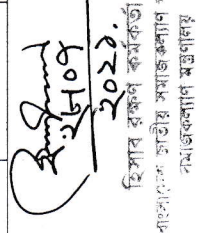 ২০২১.
হিসাব রক্ষণ কর্মকর্তা
বাংলাদেশ জাতীয় সমাজ কল্যাণ
সমাজকল্যাণ মন্ত্রণালয়